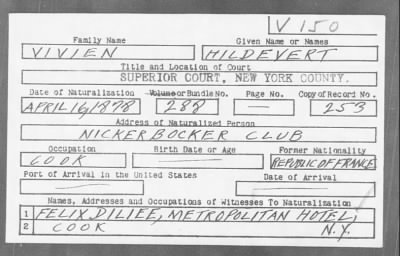 V 150
Family Name Given Name or Names
VIVIEN HILDEVERT
Title and Location of Court
SUPERIOR COURT, NEW YORK COUNTY.
Date of Naturalization Volume or Bundle No. Page No. Copy of Record No.
APRIL 16, 1878 288 — 253
Address of Naturalized Person
NICKERBOCKER CLUB
Occupation Birth Date or Age Former Nationality
COOK — REPUBLIC OF FRANCE
Port of Arrival in the United States Date of Arrival
— —
Names, Addresses and Occupations of Witnesses To Naturalization
1 FELIX DILIEE, METROPOLITAN HOTEL,
2 COOK N.Y.